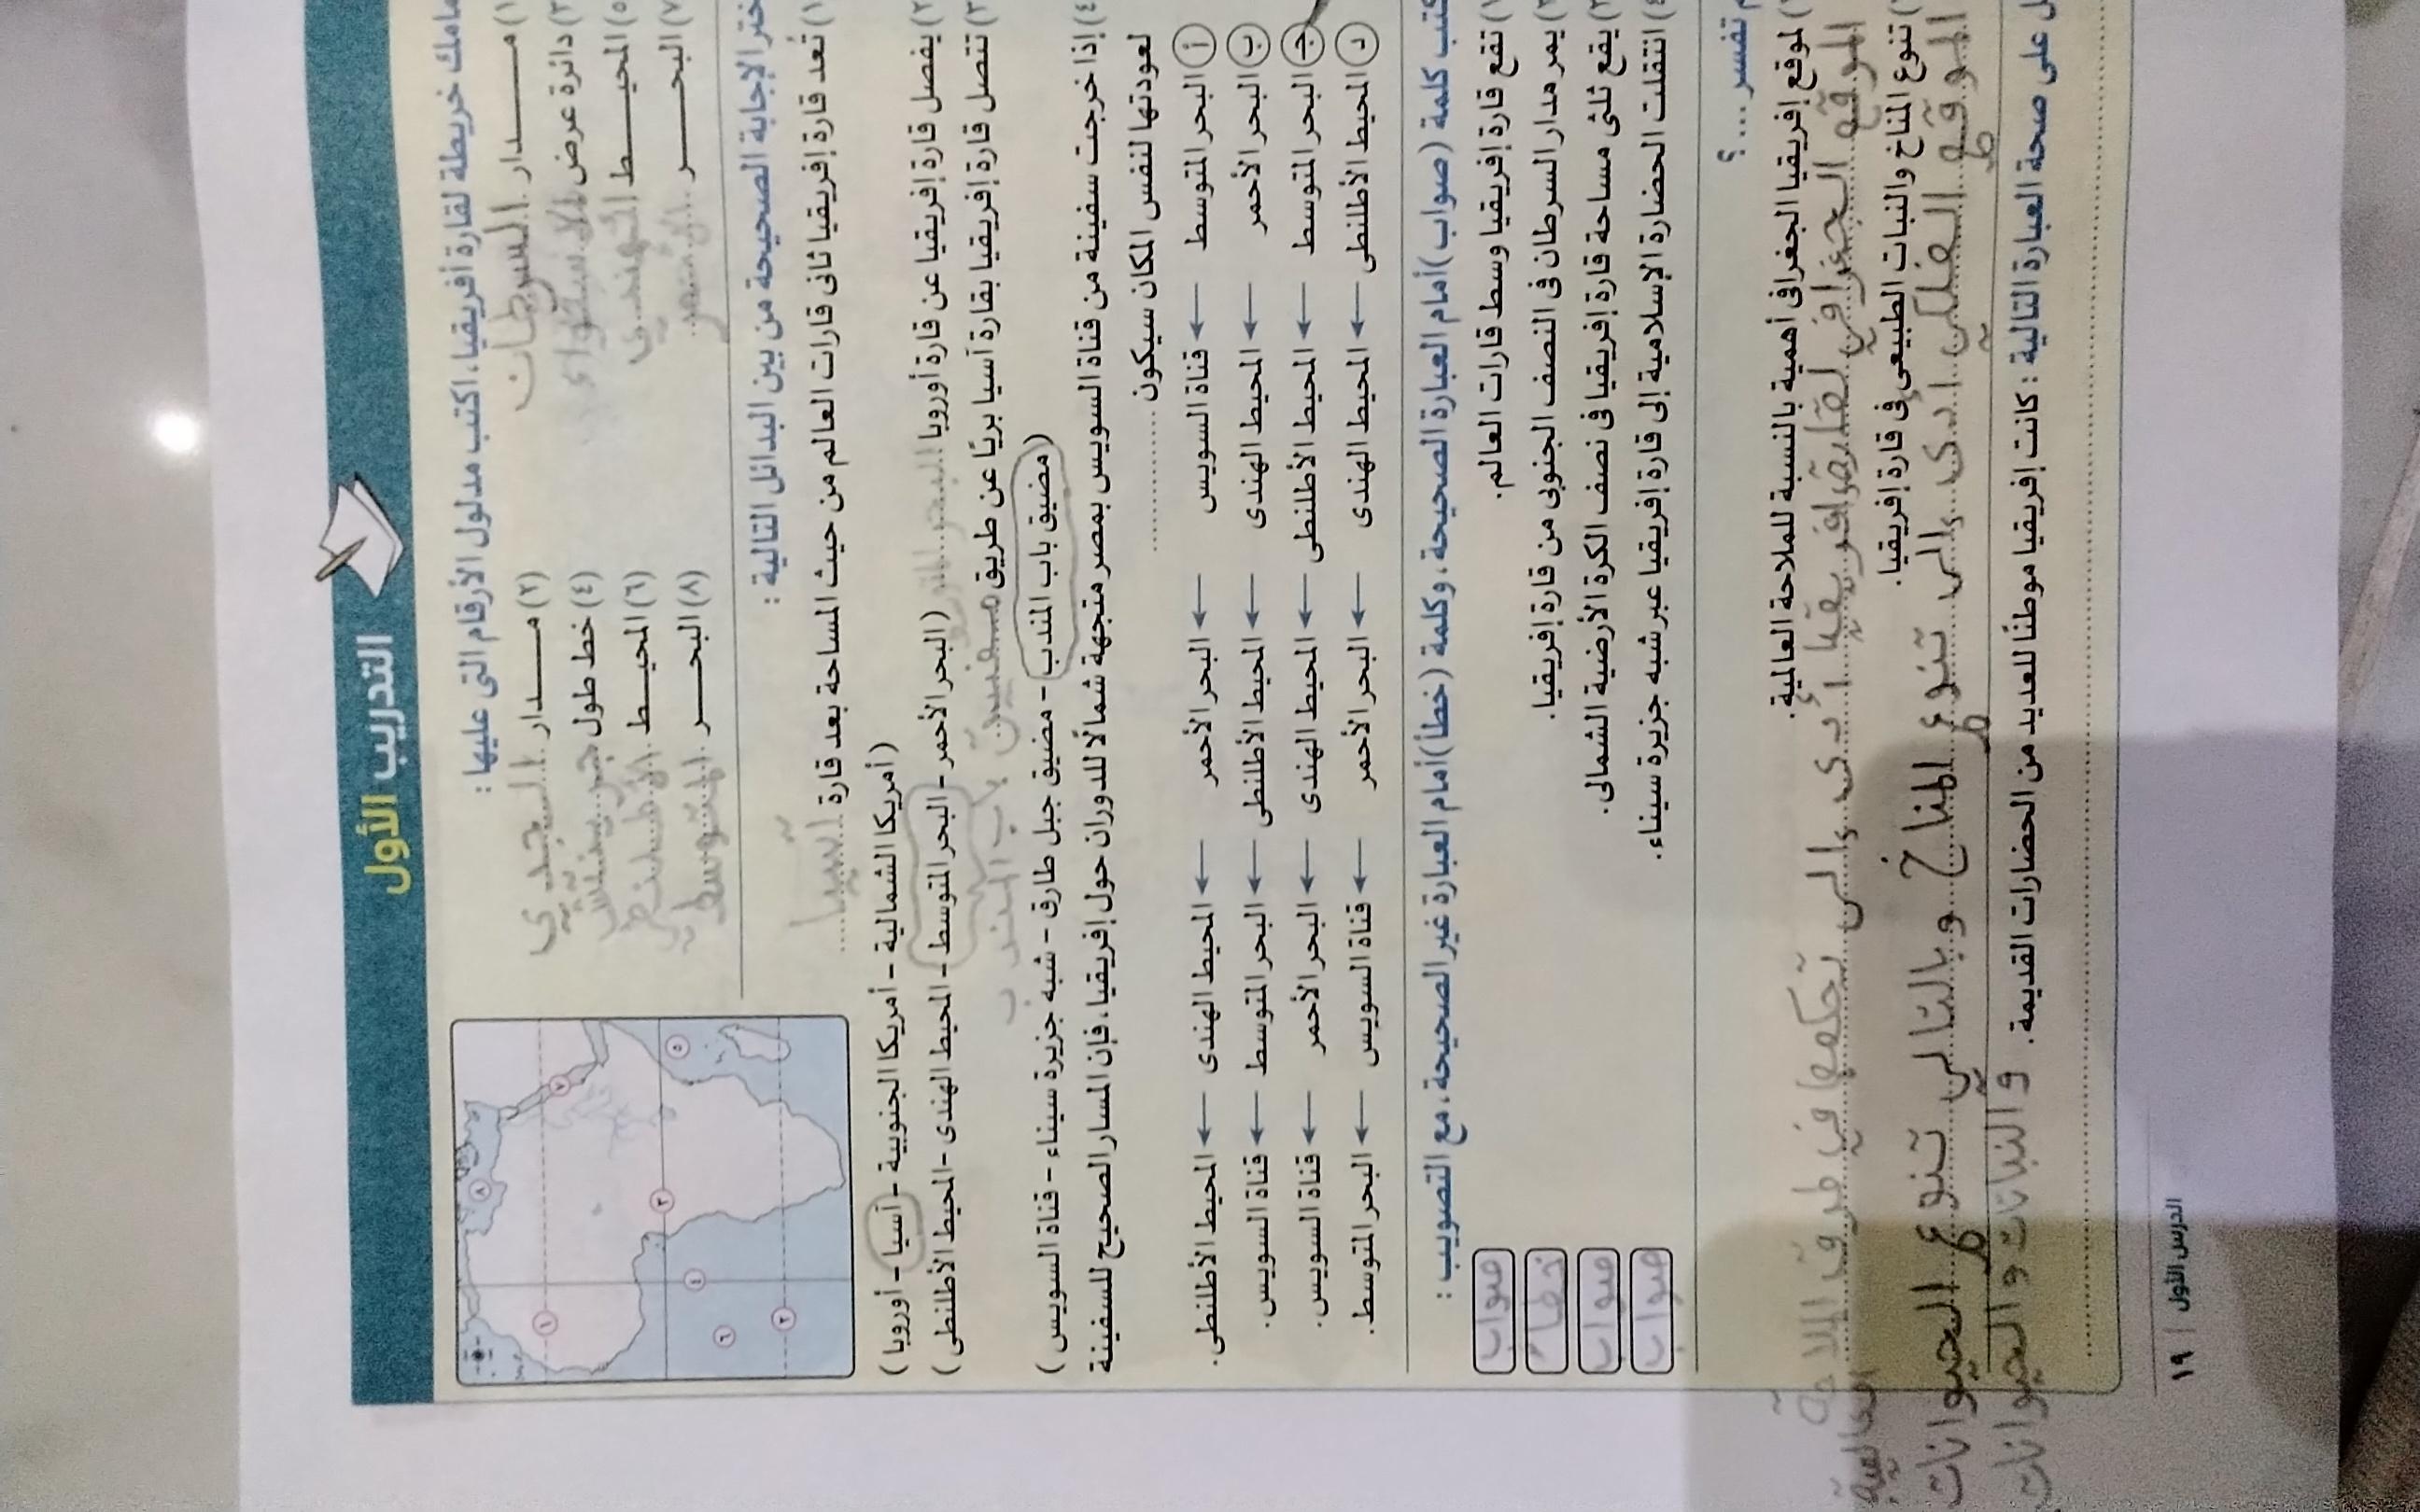 التدريب الأول
مامك خريطة لقارة أفريقيا، اكتب مدلول الأرقام التى عليها :
(١) مـــدار السرطان
(٢) مـــدار الجدي
(٣) دائرة عرض الاستواء
(٤) خط طول جرينتش
(٥) المحيـــط الهندي
(٦) المحيـــط الأطلنطي
(٧) البحـــر الأحمر
(٨) البحـــر المتوسط
ختر الإجابة الصحيحة من بين البدائل التالية :
(١) تُعد قارة إفريقيا ثانى قارات العالم من حيث المساحة بعد قارة آسيا
(أمريكا الشمالية - أمريكا الجنوبية - آسيا - أوروبا)
(٢) يفصل قارة إفريقيا عن قارة أوروبا البحر المتوسط
(البحر الأحمر - البحر المتوسط - المحيط الهندى - المحيط الأطلنطى)
(٣) تتصل قارة إفريقيا بقارة آسيا بريًا عن طريق مضيق باب المندب
(مضيق باب المندب - مضيق جبل طارق - شبه جزيرة سيناء - قناة السويس)
(٤) إذا خرجت سفينة من قناة السويس بمصر متجهة شمالًا للدوران حول إفريقيا، فإن المسار الصحيح للسفينة
لعودتها لنفس المكان سيكون ..........
أ البحر المتوسط ← قناة السويس ← البحر الأحمر ← المحيط الهندى ← المحيط الأطلنطى.
ب البحر الأحمر ← المحيط الهندى ← المحيط الأطلنطى ← البحر المتوسط ← قناة السويس.
ج البحر المتوسط ← المحيط الأطلنطى ← المحيط الهندى ← البحر الأحمر ← قناة السويس.
د المحيط الأطلنطى ← المحيط الهندى ← البحر الأحمر ← قناة السويس ← البحر المتوسط.
كتب كلمة (صواب) أمام العبارة الصحيحة، وكلمة (خطأ) أمام العبارة غير الصحيحة، مع التصويب :
(١) تقع قارة إفريقيا وسط قارات العالم. صواب
(٢) يمر مدار السرطان فى النصف الجنوبى من قارة إفريقيا. خطأ
(٣) يقع ثلثى مساحة قارة إفريقيا فى نصف الكرة الأرضية الشمالى. صواب
(٤) انتقلت الحضارة الإسلامية إلى قارة إفريقيا عبر شبه جزيرة سيناء. صواب
م تفسر ... ؟
(١) لموقع إفريقيا الجغرافى أهمية بالنسبة للملاحة العالمية.
الموقع الجغرافي لقارة افريقيا أدى إلى تحكمها في طرق الملاحة
العالمية
(٢) تنوع المناخ والنبات الطبيعى فى قارة إفريقيا.
الموقع الفلكي ادى إلى تنوع المناخ وبالتالي تنوع الحيوانات
والنباتات والحيوانات
ل على صحة العبارة التالية : كانت إفريقيا موطنًا للعديد من الحضارات القديمة.
١٩ الدرس الأول